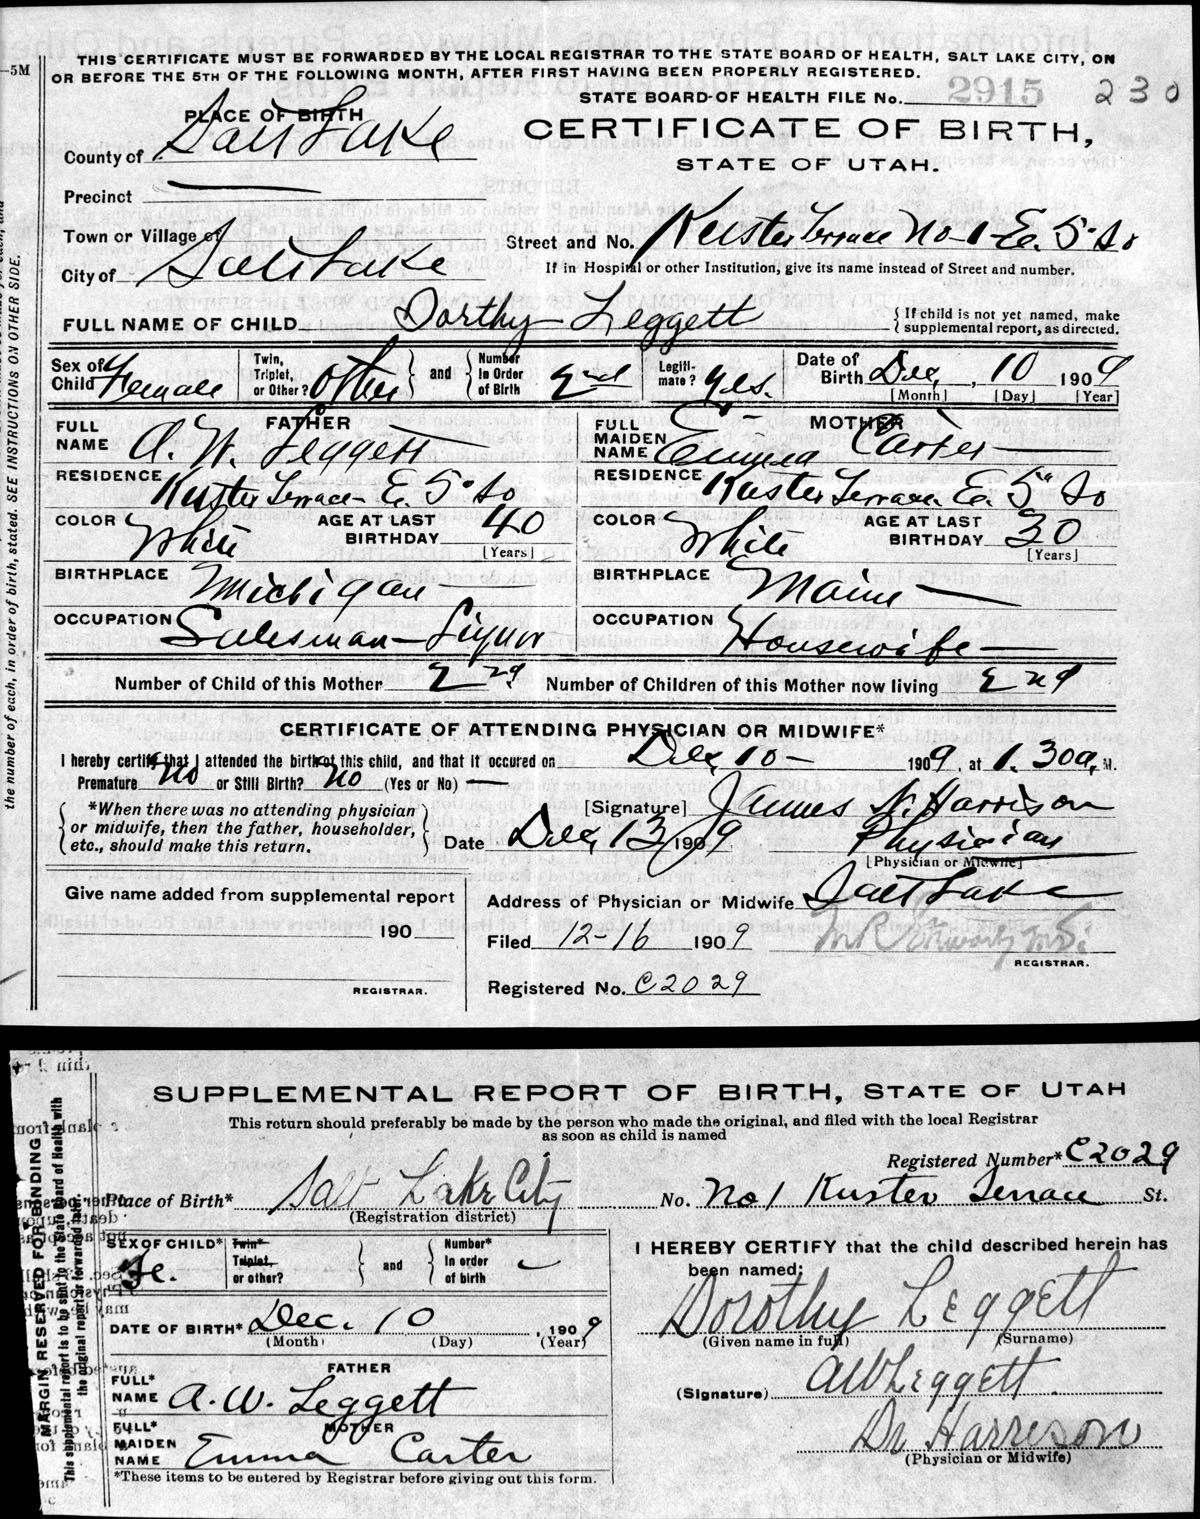 THIS CERTIFICATE MUST BE FORWARDED BY THE LOCAL REGISTRAR TO THE STATE BOARD OF HEALTH, SALT LAKE CITY, ON
OR BEFORE THE 5TH OF THE FOLLOWING MONTH, AFTER FIRST HAVING BEEN PROPERLY REGISTERED.
—5M
STATE BOARD OF HEALTH FILE No. 2915 230
PLACE OF BIRTH
CERTIFICATE OF BIRTH,
STATE OF UTAH.
County of Salt Lake
Precinct —
Town or Village of
Street and No. Kuster Terrace No-1-E. 5" So
City of Salt Lake
If in Hospital or other Institution, give its name instead of Street and number.
FULL NAME OF CHILD Dorthy Leggett
{ If child is not yet named, make supplemental report, as directed.
Sex of Child Female
Twin, Triplet, or Other? Other } and { Number In Order of Birth 2nd
Legitimate? Yes.
Date of Birth Dec, 10 1909
[Month] [Day] [Year]
FATHER
FULL NAME A. W. Leggett
RESIDENCE Kuster Terrace E. 5" So
COLOR White AGE AT LAST BIRTHDAY 40
[Years]
BIRTHPLACE Michigan
OCCUPATION Salesman—Liquor
MOTHER
FULL MAIDEN NAME Emma Carter
RESIDENCE Kuster Terrace E. 5" So
COLOR White AGE AT LAST BIRTHDAY 30
[Years]
BIRTHPLACE Maine
OCCUPATION Housewife
Number of Child of this Mother 2nd Number of Children of this Mother now living 2nd
CERTIFICATE OF ATTENDING PHYSICIAN OR MIDWIFE*
I hereby certify that I attended the birth of this child, and that it occured on Dec, 10— 1909, at 1.30 a. M.
Premature No or Still Birth? No (Yes or No) —
*When there was no attending physician
or midwife, then the father, householder,
etc., should make this return.
[Signature] James N. Harrison
Date Dec, 13 1909 Physician
[Physician or Midwife]
Give name added from supplemental report
190
REGISTRAR.
Address of Physician or Midwife Salt Lake
Filed 12-16 1909
REGISTRAR.
Registered No. C2029
the number of each, in order of birth, stated. SEE INSTRUCTIONS ON OTHER SIDE.
SUPPLEMENTAL REPORT OF BIRTH, STATE OF UTAH
This return should preferably be made by the person who made the original, and filed with the local Registrar
as soon as child is named
Registered Number* C2029
Place of Birth* Salt Lake City No. No 1 Kuster Terrace St.
(Registration district)
SEX OF CHILD* Fe.
Twin* Triplet, or other? } and { Number* In order of birth
DATE OF BIRTH* Dec. 10, 1909
(Month) (Day) (Year)
FATHER
FULL* NAME A. W. Leggett
MOTHER
FULL* MAIDEN NAME Emma Carter
*These items to be entered by Registrar before giving out this form.
I HEREBY CERTIFY that the child described herein has
been named:
Dorothy Leggett
(Given name in full) (Surname)
(Signature) AW Leggett
Dr Harrison
(Physician or Midwife)
MARGIN RESERVED FOR BINDING
This supplemental report is to be sent to the State Board of Health with
the original report or forwarded later.